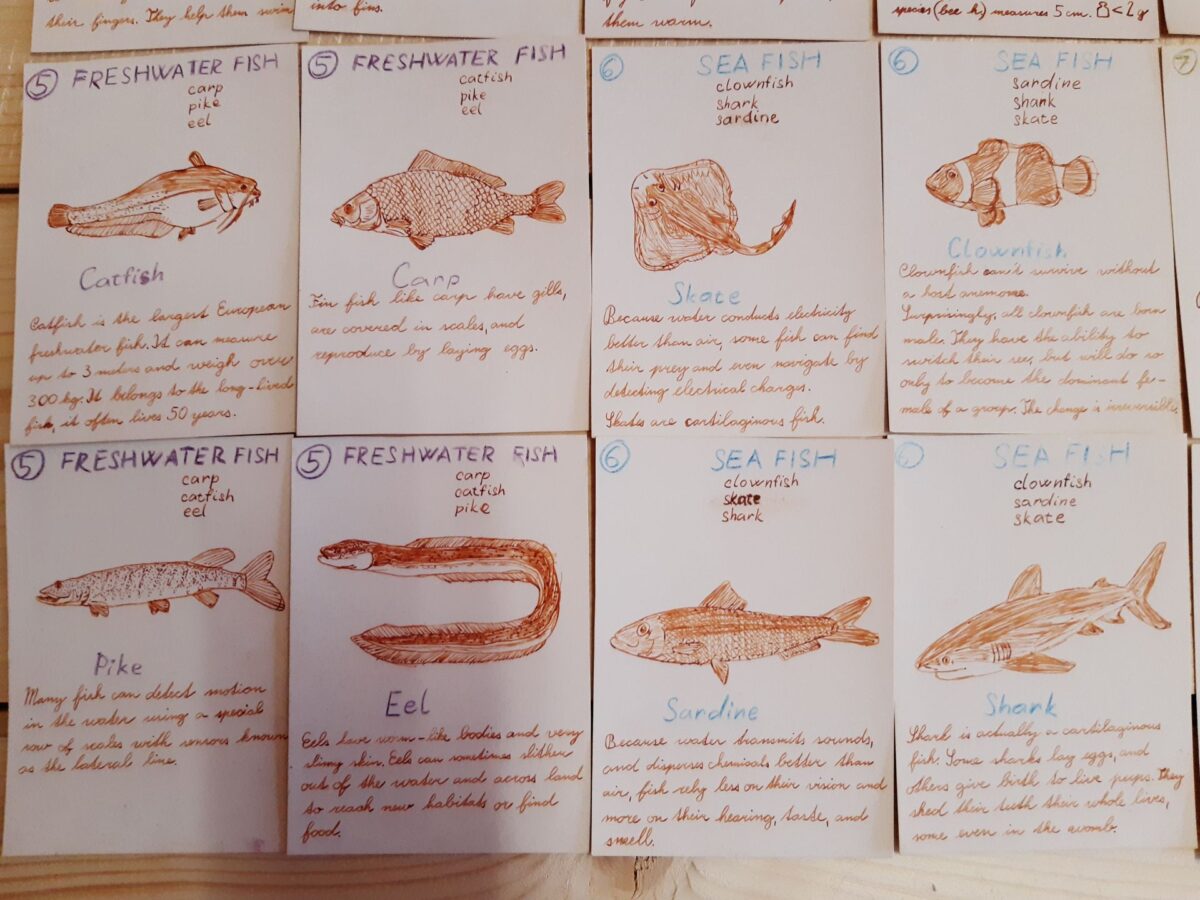 their fingers. They help them swim
into fins.
them warm.
species (bee h.) measures 5 cm. < 2 g
5 FRESHWATER FISH
carp
pike
eel
Catfish
Catfish is the largest European
freshwater fish. It can measure
up to 3 meters and weigh over
300 kg. It belongs to the long-lived
fish, it often lives 50 years.
5 FRESHWATER FISH
catfish
pike
eel
Carp
Fin fish like carp have gills,
are covered in scales, and
reproduce by laying eggs.
6 SEA FISH
clownfish
shark
sardine
Skate
Because water conducts electricity
better than air, some fish can find
their prey and even navigate by
detecting electrical charges.
Skates are cartilaginous fish.
6 SEA FISH
sardine
shark
skate
Clownfish
Clownfish can't survive without
a host anemone.
Surprisingly, all clownfish are born
male. They have the ability to
switch their sex, but will do so
only to become the dominant fe-
male of a group. The change is irreversible.
7
5 FRESHWATER FISH
carp
catfish
eel
Pike
Many fish can detect motion
in the water using a special
row of scales with sensors known
as the lateral line.
5 FRESHWATER FISH
carp
catfish
pike
Eel
Eels have worm-like bodies and very
slimy skin. Eels can sometimes slither
out of the water and across land
to reach new habitats or find
food.
6 SEA FISH
clownfish
skate
shark
Sardine
Because water transmits sounds,
and disperses chemicals better than
air, fish rely less on their vision and
more on their hearing, taste, and
smell.
6 SEA FISH
clownfish
sardine
skate
Shark
Shark is actually a cartilaginous
fish. Some sharks lay eggs, and
others give birth to live pups. They
shed their teeth their whole lives,
some even in the womb.